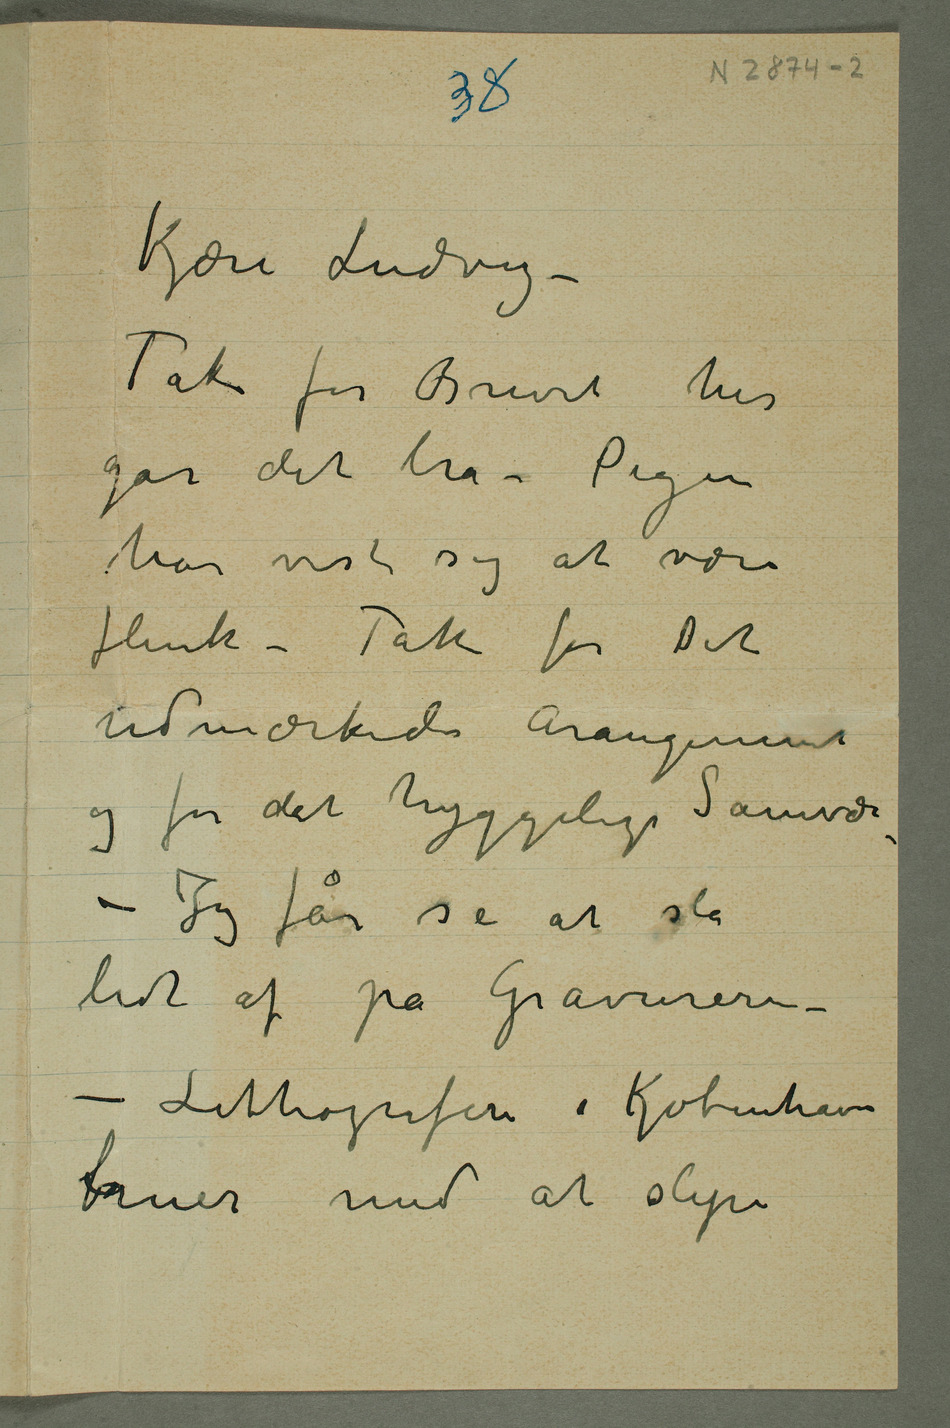 38
N 2874-2
Kjære Ludvig –
Tak for Brevet her
går det bra – Pigen
har vist sig at være
flink – Tak for Det
udmærkede Arangement
og for det hyggelige Samvær
– Jeg får se at slå
lidt af på Gravureren –
– Lithografen i Kjøbenhavn
truer med at slipe